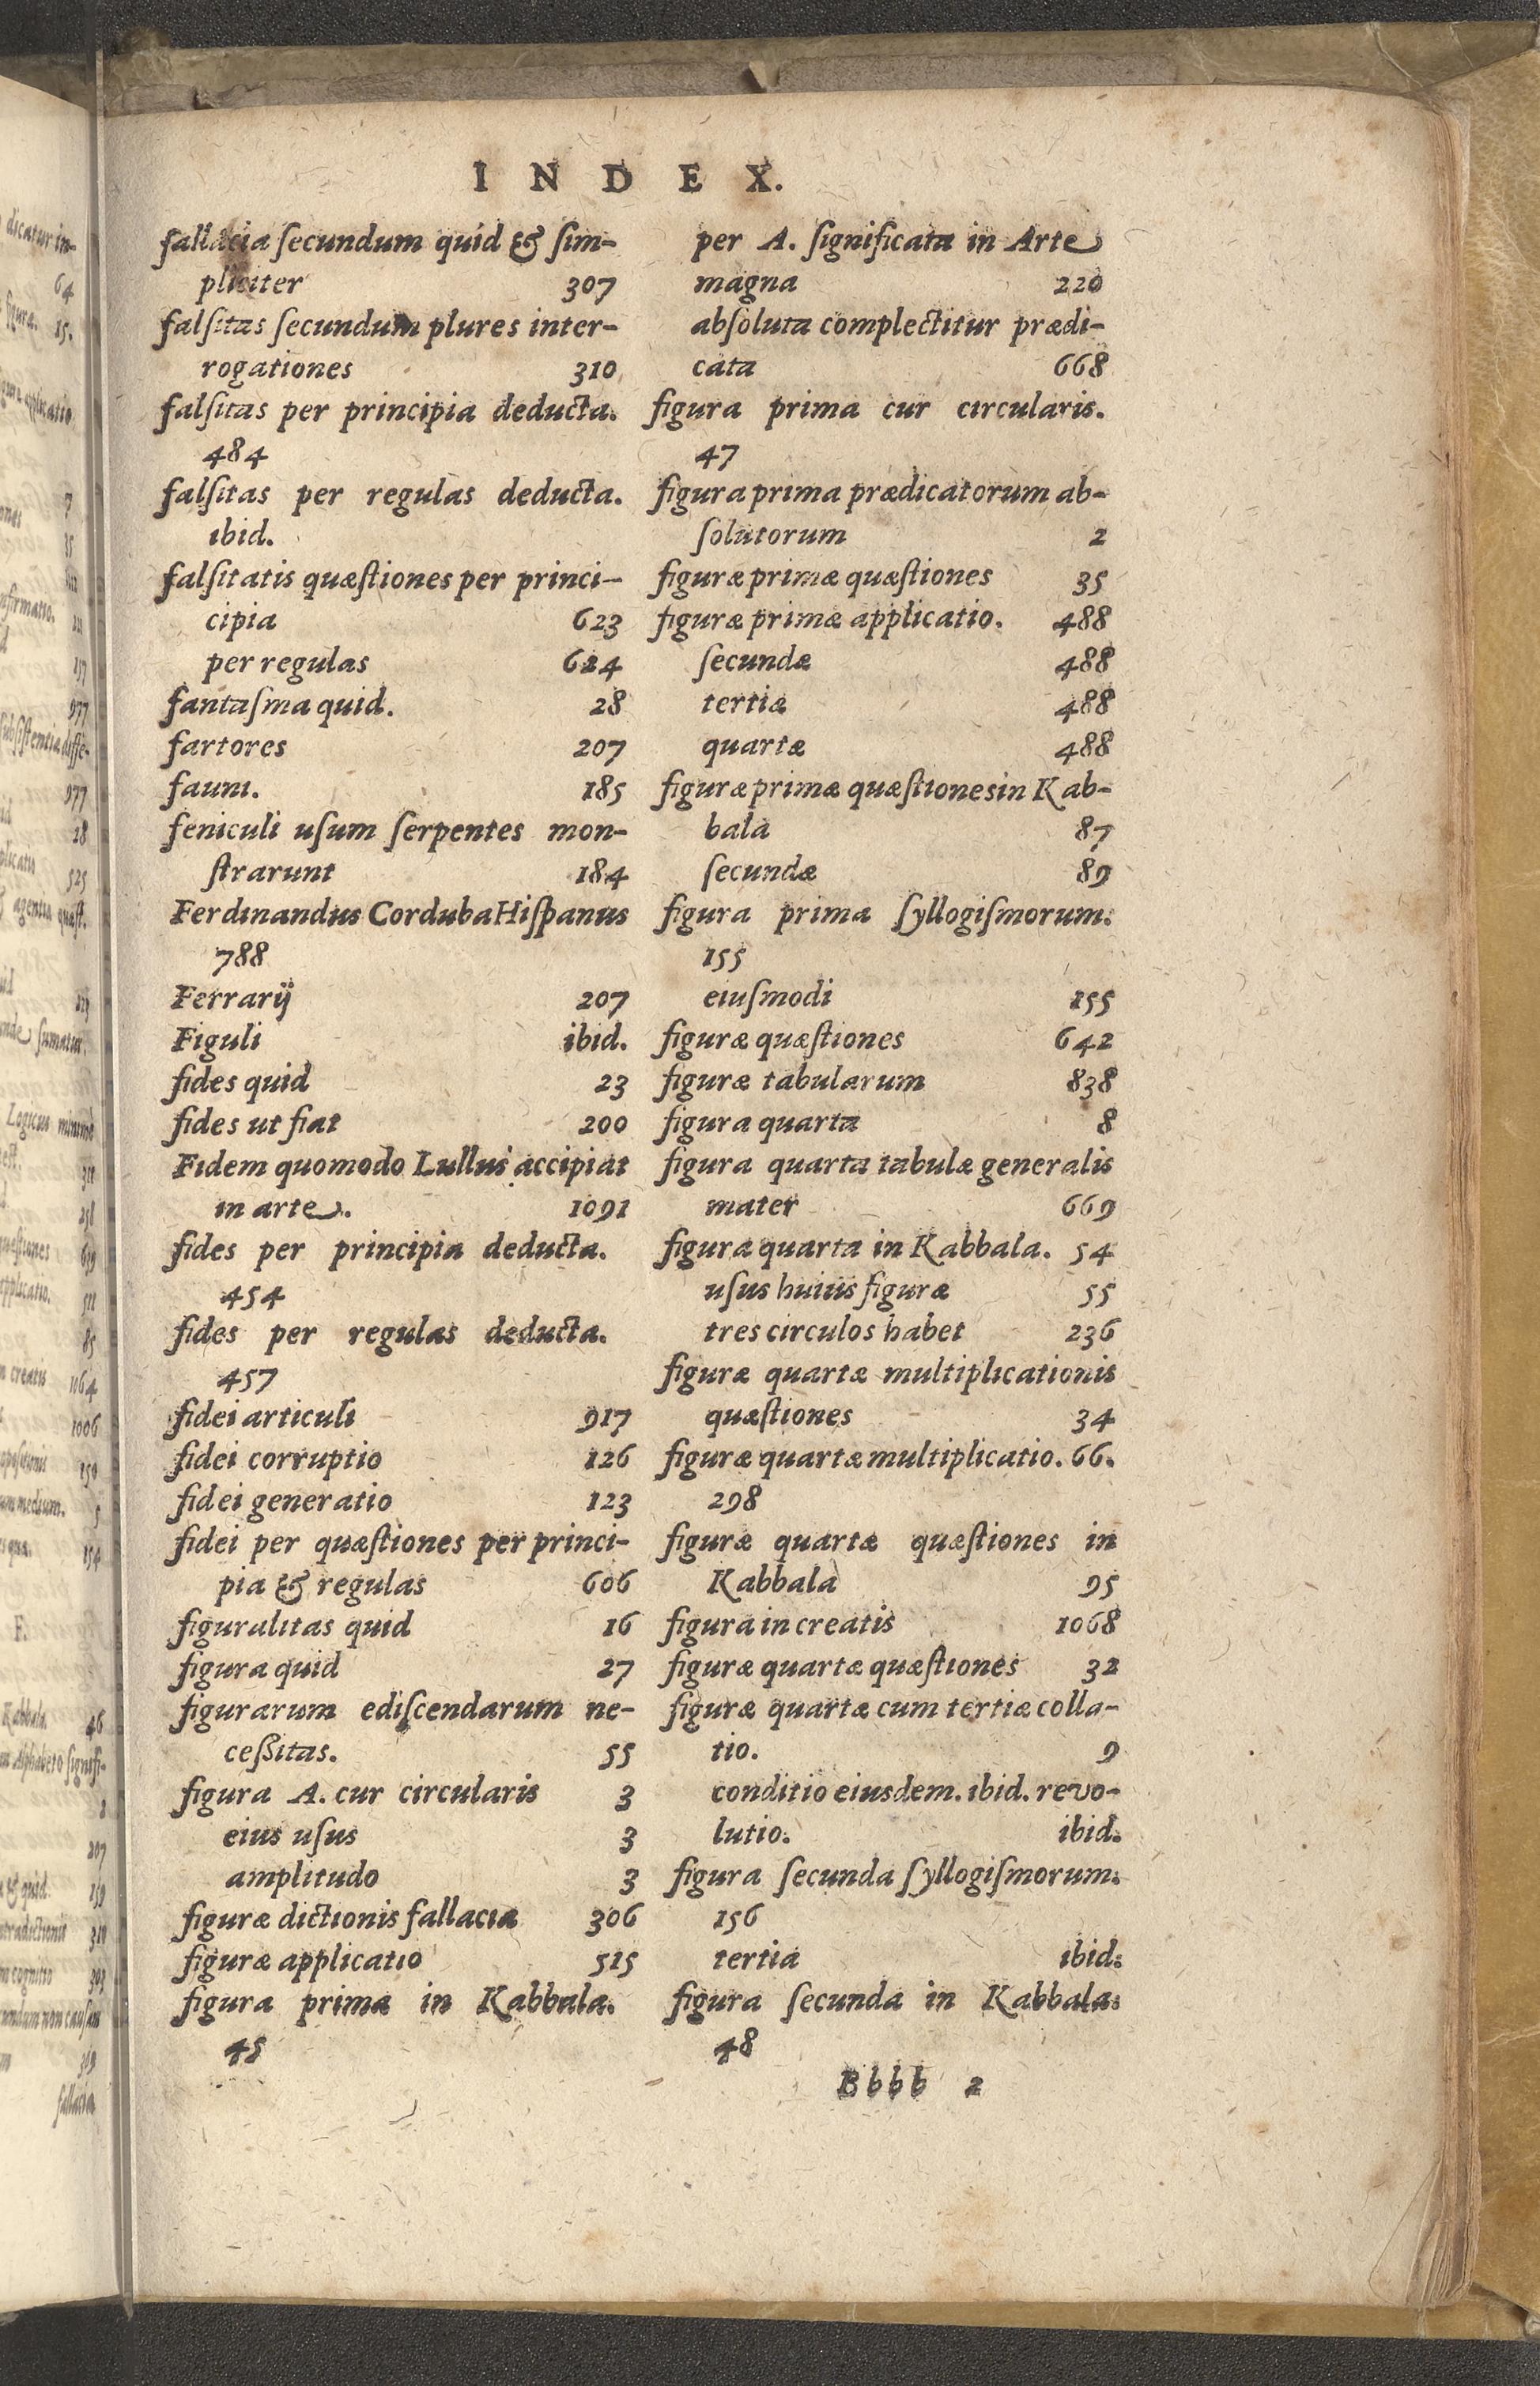 INDEX.
fallacia ſecundum quid & ſim-
pliciter 307
falſitas ſecundum plures inter-
rogationes 310
falſitas per principia deducta.
484
falſitas per regulas deducta.
ibid.
falſitatis quæſtiones per princi-
cipia 623
per regulas 624
fantaſma quid. 28
fartores 207
fauni. 185
feniculi uſum ſerpentes mon-
ſtrarunt 184
Ferdinandus Corduba Hiſpanus
788
Ferrarij 207
Figuli ibid.
fides quid 23
fides ut fiat 200
Fidem quomodo Lullus accipiat
in arte. 1091
fides per principia deducta.
454
fides per regulas deducta.
457
fidei articuli 917
fidei corruptio 126
fidei generatio 123
fidei per quæſtiones per princi-
pia & regulas 606
figuralitas quid 16
figura quid 27
figurarum ediſcendarum ne-
ceſsitas. 55
figura A. cur circularis 3
eius uſus 3
amplitudo 3
figuræ dictionis fallacia 306
figuræ applicatio 515
figura prima in Kabbala.
45
per A. ſignificata in Arte
magna 220
abſoluta complectitur prædi-
cata 668
figura prima cur circularis.
47
figura prima prædicatorum ab-
ſolutorum 2
figuræ primæ quæſtiones 35
figuræ primæ applicatio. 488
ſecundæ 488
tertiæ 488
quartæ 488
figuræ primæ quæſtiones in Kab-
bala 87
ſecundæ 89
figura prima ſyllogiſmorum.
155
eiuſmodi 155
figuræ quæſtiones 642
figuræ tabularum 838
figura quarta 8
figura quarta tabulæ generalis
mater 669
figura quarta in Kabbala. 54
uſus huius figuræ 55
tres circulos habet 236
figuræ quartæ multiplicationis
quæſtiones 34
figuræ quartæ multiplicatio. 66.
298
figuræ quartæ quæſtiones in
Kabbala 95
figura in creatis 1068
figuræ quartæ quæſtiones 32
figuræ quartæ cum tertiæ colla-
tio. 9
conditio eiusdem. ibid. revo-
lutio. ibid.
figura ſecunda ſyllogiſmorum.
156
tertia ibid.
figura ſecunda in Kabbala.
48
Bbbb 2